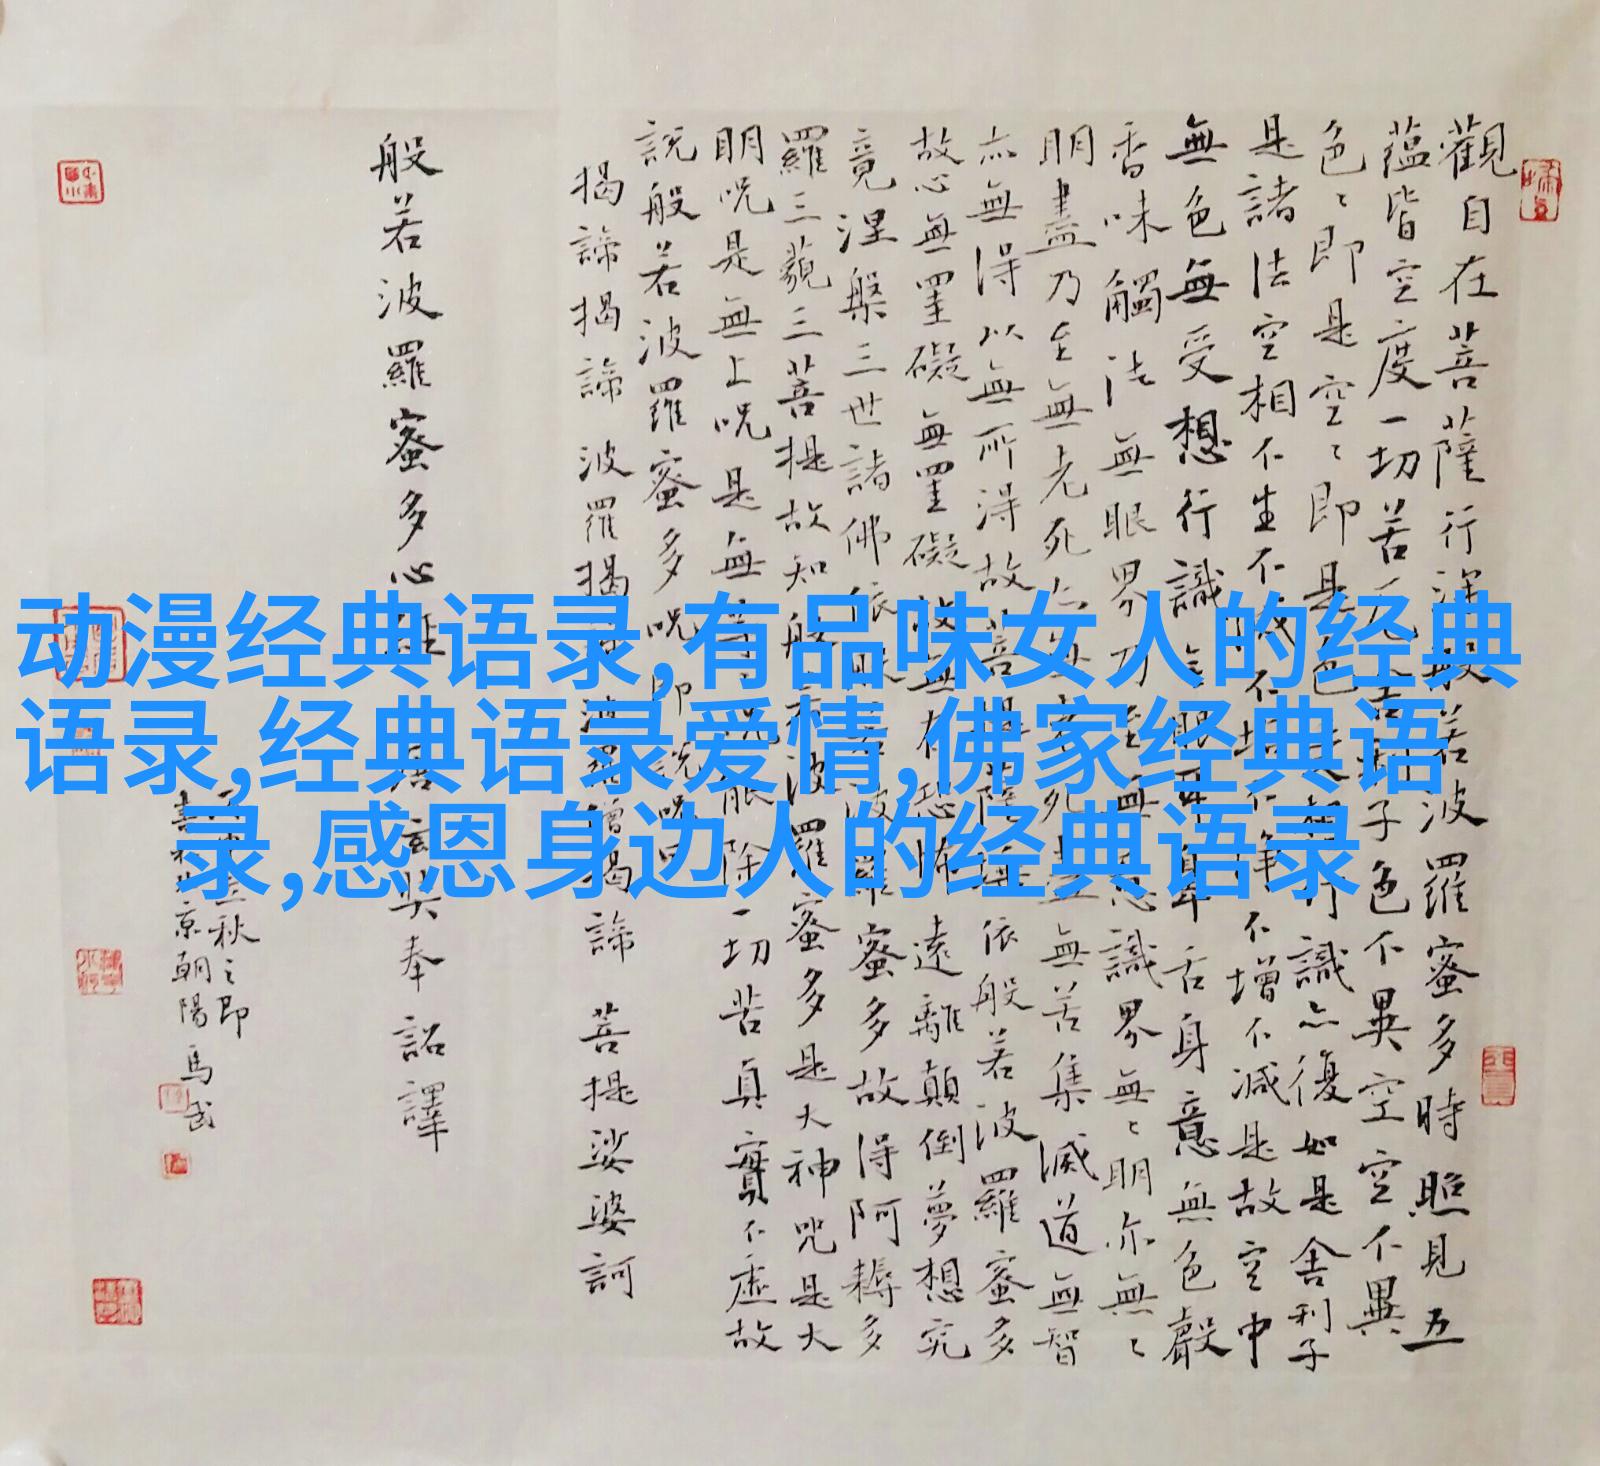 觀自在菩薩行深般若波羅蜜多時照見五
蘊皆空度一切苦厄舍利子色不異空空不異
色〻即是空〻即是色受想行識亦復如是舍利子
是諸法空相不生不滅不垢不淨不增不減是故空中
無色無受想行識無眼耳鼻舌身意無色聲
香味觸法無眼界乃至無意識界無〻明亦無〻
明盡乃至無老死亦無老死盡無苦集滅道無智
亦無得以無所得故菩提薩埵依般若波羅蜜多
故心無罣礙無罣礙故無有恐怖遠離顛倒夢想究
竟涅槃三世諸佛依般若波羅蜜多故得阿耨多
羅三藐三菩提故知般若波羅蜜多是大神咒是大
明呪是無上呪是無等呪能除一切苦真實不虛故
說般若波羅蜜多呪即說呪曰
揭諦揭諦波羅揭諦波羅僧揭諦菩提娑婆訶
般若波羅蜜多心經唐玄奘奉詔譯
秋之即
書於北京朝陽馬武
动漫经典语录,有品味女人的经典
语录,经典语录爱情,佛家经典语
录,感恩身边人的经典语录